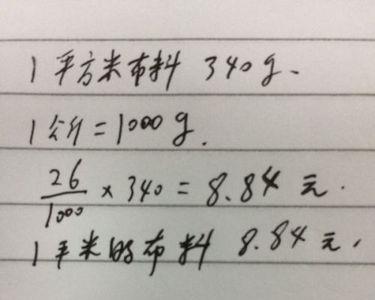 1平方米布料 340g.
1公斤=1000g.
26/1000 × 340 = 8.84 元.
1平米的布料 8.84 元,